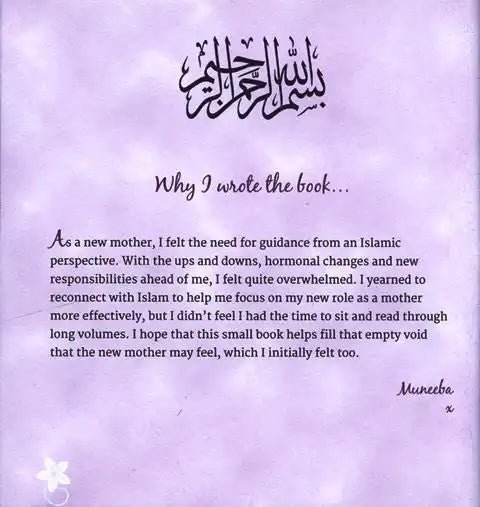 بسم الله الرحمن الرحيم
Why I wrote the book...
As a new mother, I felt the need for guidance from an Islamic
perspective. With the ups and downs, hormonal changes and new
responsibilities ahead of me, I felt quite overwhelmed. I yearned to
reconnect with Islam to help me focus on my new role as a mother
more effectively, but I didn't feel I had the time to sit and read through
long volumes. I hope that this small book helps fill that empty void
that the new mother may feel, which I initially felt too.
Muneeba
x